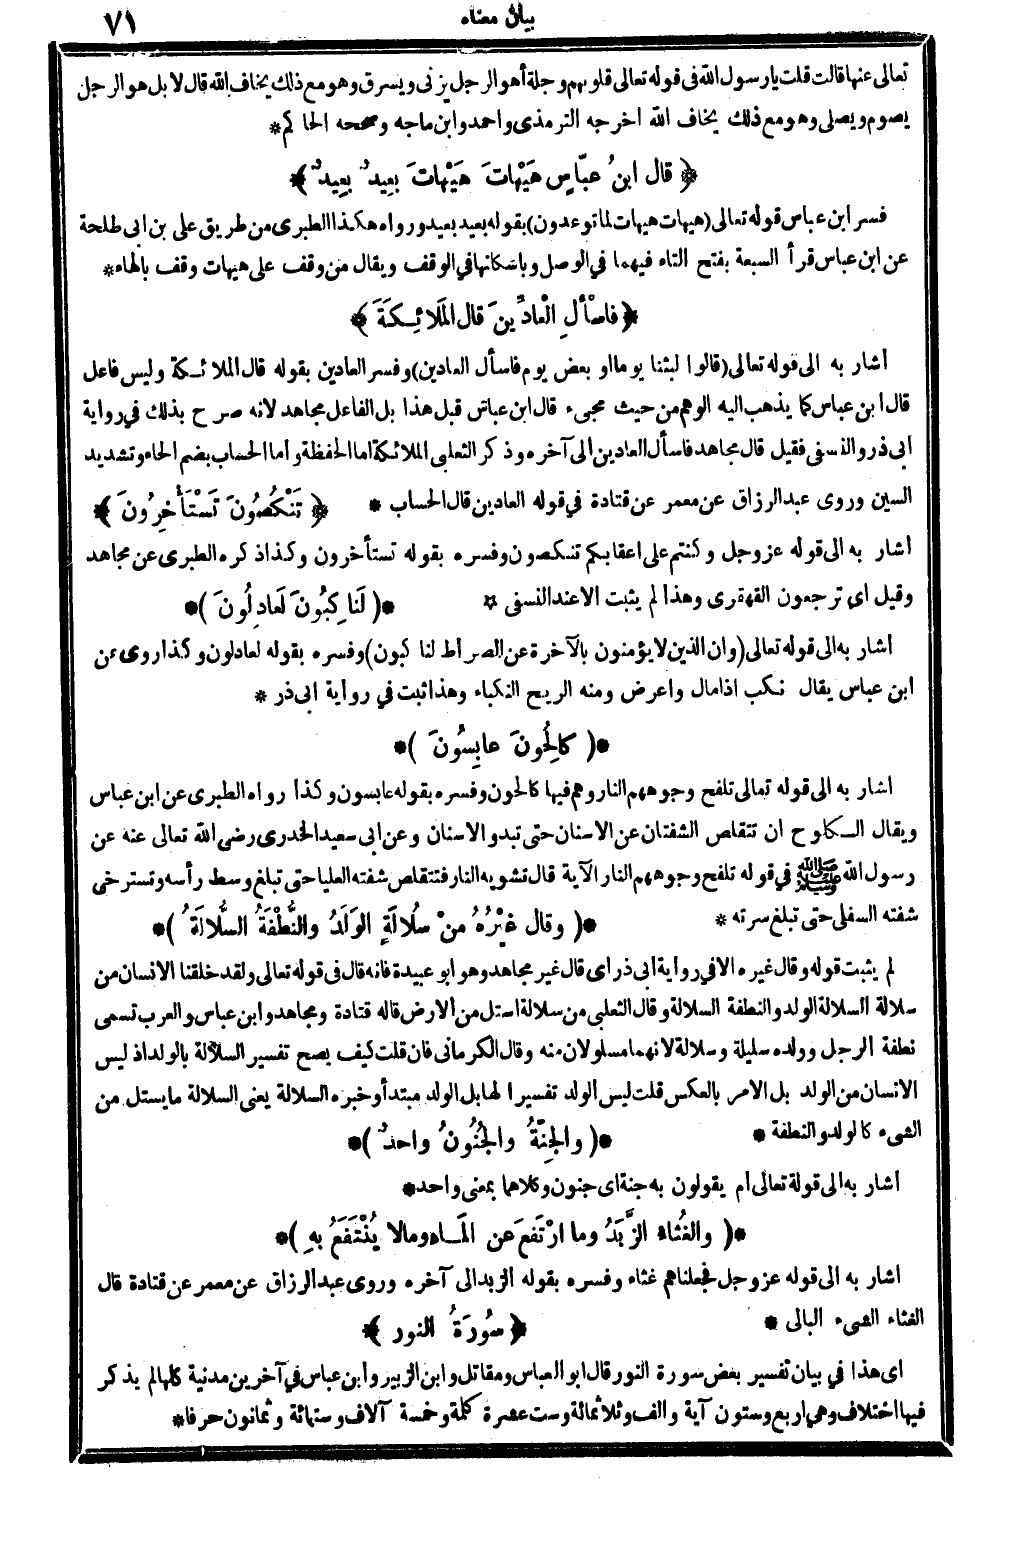 بيان معناه
٧١
تعالى عنها قالت قلت يا رسول الله فى قوله تعالى قلوبهم وجلة أهو الرجل يزنى ويسرق وهو مع ذلك يخاف الله قال لا بل هو الرجل
يصوم ويصلى وهو مع ذلك يخاف الله اخرجه الترمذى واحمد وابن ماجه وصححه الحاكم *
﴿ قال ابنُ عبّاسٍ هَيْهَاتَ هَيْهَاتَ بعِيدٌ بعِيدٌ ﴾
فسر ابن عباس قوله تعالى (هيهات هيهات لما توعدون) بقوله بعيد بعيد ورواه هكذا الطبرى من طريق على بن ابى طلحة
عن ابن عباس قرأ السبعة بفتح التاء فيهما في الوصل وباسكانها في الوقف ويقال من وقف على هيهات وقف بالهاء *
﴿ فاسْألِ الْعادِّينَ قال المَلَائِكَةَ ﴾
أشار به الى قوله تعالى (قالوا لبثنا يوما او بعض يوم فاسأل العادين) وفسر العادين بقوله قال الملائكة وليس فاعل
قال ابن عباس كما يذهب اليه الوهم من حيث مجىء قال ابن عباس قبل هذا بل الفاعل مجاهد لانه صرح بذلك في رواية
ابى ذر والنسفى فقيل قال مجاهد فاسأل العادين الى آخره وذكر الثعلبى الملائكة اما الحفظة وأما الحساب بضم الحاء وتشديد
السين وروى عبد الرزاق عن معمر عن قتادة في قوله العادين قال الحساب * ﴿ تَنْكُصُونَ تَسْتَأْخِرُونَ ﴾
أشار به الى قوله عز وجل وكنتم على اعقابكم تنكصون وفسره بقوله تستأخرون وكذا ذكره الطبرى عن مجاهد
وقيل اى ترجعون القهقرى وهذا لم يثبت الا عند النسفى * *( لَنا كِبُونَ لَعادِلُونَ )*
أشار به الى قوله تعالى (وان الذين لا يؤمنون بالآخرة عن الصراط لنا كبون) وفسره بقوله لعادلون وكذا روى عن
ابن عباس يقال نكب اذا مال واعرض ومنه الريح النكباء وهذا ثبت في رواية ابى ذر *
*( كالِحُونَ عابِسُونَ )*
اشار به الى قوله تعالى تلفح وجوههم النار وهم فيها كالحون وفسره بقوله عابسون وكذا رواه الطبرى عن ابن عباس
ويقال الكلوح ان تتقلص الشفتان عن الاسنان حتى تبدو الاسنان وعن ابى سعيد الخدرى رضى الله تعالى عنه عن
رسول الله ﷺ في قوله تلفح وجوههم النار الآية قال تشويه النار فتتقلص شفته العليا حتى تبلغ وسط رأسه وتسترخى
شفته السفلى حتى تبلغ سرته * *( وقال غيْرُهُ منْ سُلالَةٍ الوَلَدُ والنُّطْفَةُ السُّلالَةُ )*
لم يثبت قوله وقال غيره الا في رواية ابى ذر اى قال غير مجاهد وهو ابو عبيدة فانه قال فى قوله تعالى ولقد خلقنا الانسان من
سلالة السلالة الولد والنطفة السلالة وقال الثعلبي من سلالة استل من الارض قاله قتادة ومجاهد وابن عباس والعرب تسمى
نطفة الرجل وولده سليلة وسلالة لانهما مسلولان منه وقال الكرمانى فان قلت كيف يصح تفسير السلالة بالولد اذ ليس
الانسان من الولد بل الامر بالعكس قلت ليس الولد تفسيرا لها بل الولد مبتدأ وخبره السلالة يعنى السلالة ما يستل من
الشىء كالولد والنطفة * *( والجِنَّةُ والجُنُونُ واحدٌ )*
أشار به الى قولة تعالى أم يقولون به جنة اى جنون وكلاهما بمعنى واحد *
*( والغُثاء الزَّبَدُ وما ارْتَفَعَ عن المــاء وما لا يُنْتَفَعُ بهِ )*
اشار به الى قوله عز وجل فجعلناهم غثاء وفسره بقوله الزبد الى آخره وروى عبد الرزاق عن معمر عن قتادة قال
الغثاء الشىء البالى * ﴿ سُورَةُ النور ﴾
اى هذا في بيان تفسير بعض سورة النور قال ابو العباس ومقاتل وابن الزبير وأبن عباس في آخرين مدنية كلها لم يذكر
فيها اختلاف وهي اربع وستون آية والف وثلاثمائة وست عشرة كلمة وخمسة آلاف وستمائة وثمانون حرفا *